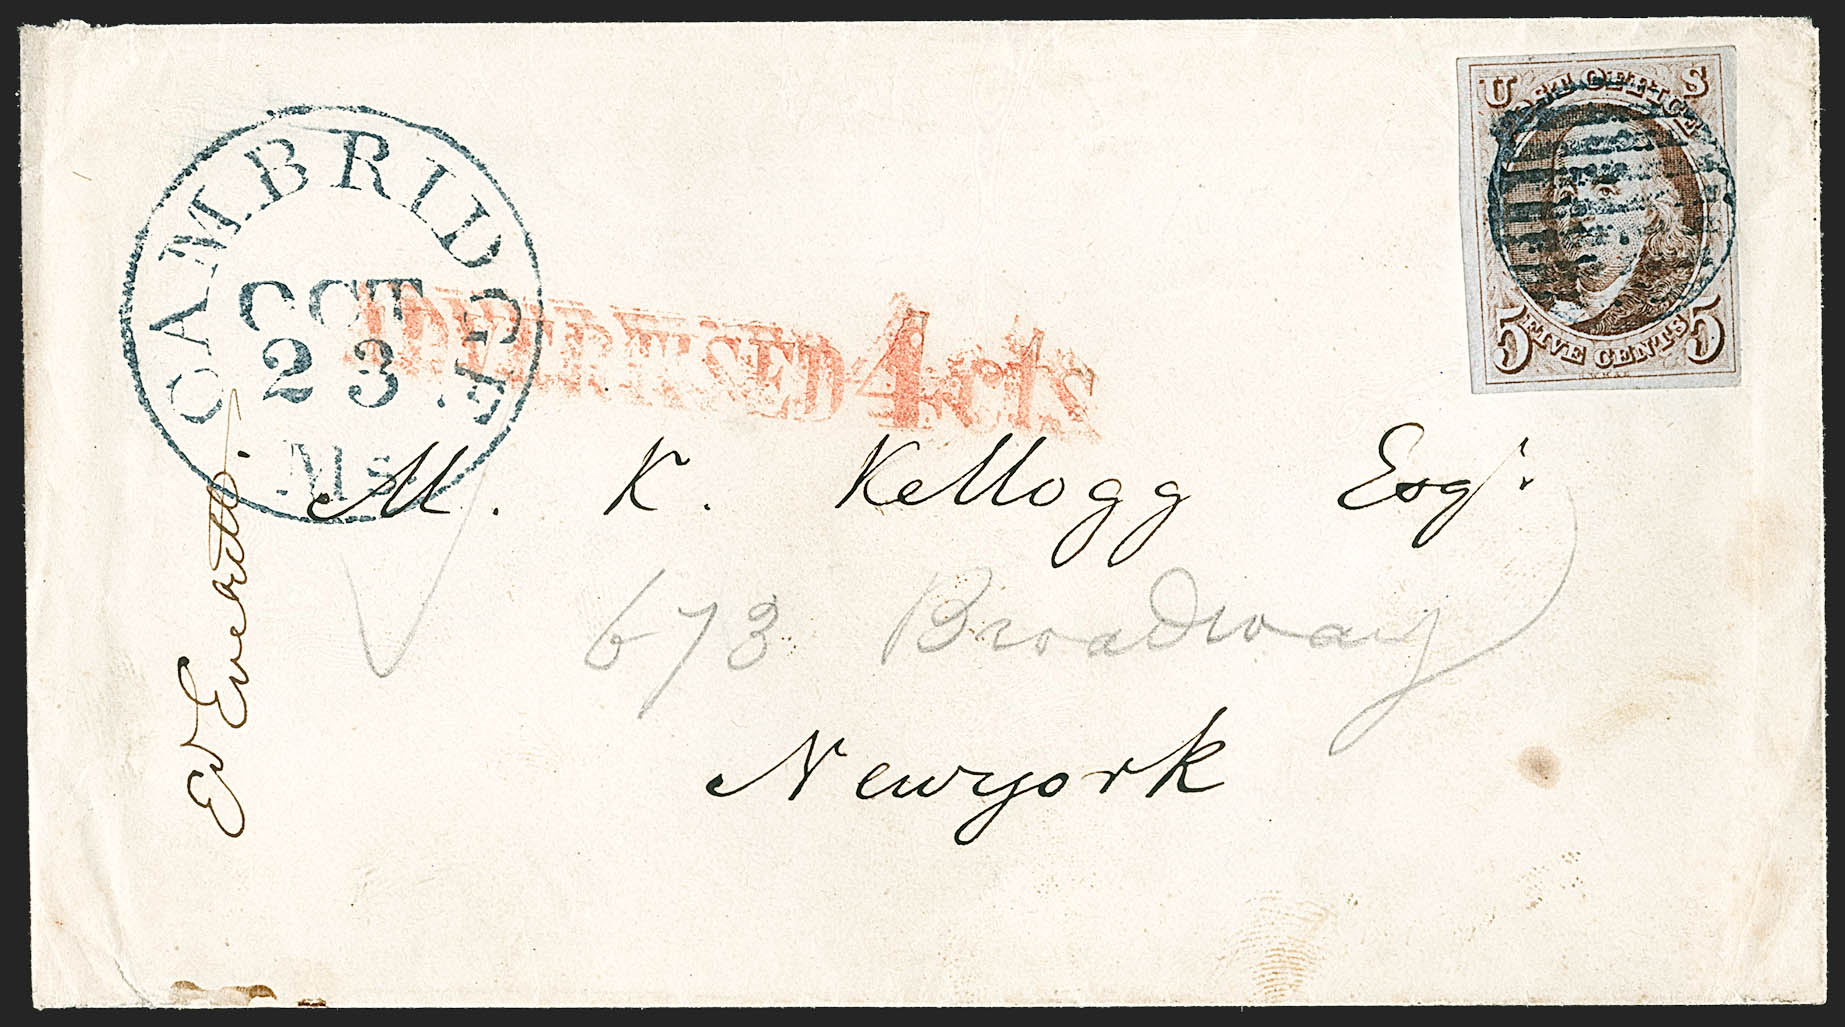 CAMBRIDGE
OCT
23
Ms
ADVERTISED 4 cts
U S
POST OFFICE
5 FIVE CENTS 5
M. K. Kellogg Esqr.
673 Broadway
Newyork